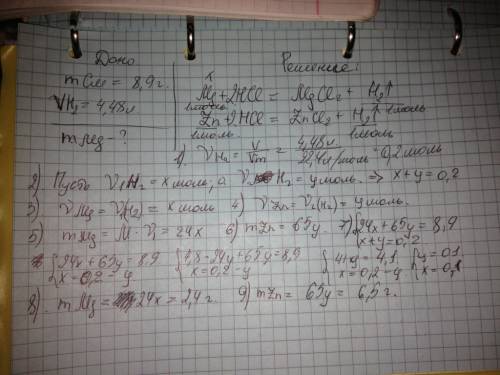 Дано
Решение:
m см = 8,9 г.
VH₂ = 4,48 л
m Mg - ?
Mg + 2HCl = MgCl₂ + H₂↑
1моль 1моль
Zn + 2HCl = ZnCl₂ + H₂↑
1моль. 1моль
1) νH₂ = V/Vm = 4,48л/22,4л/моль = 0,2 моль
2) Пусть ν₁H₂ = x моль, а ν₂H₂ = y моль. => x+y = 0,2
3) νMg = ν₁(H₂) = x моль 4) νZn = ν₂(H₂) = y моль.
5) mMg = M · ν₁ = 24x 6) mZn = 65y 7) {24x + 65y = 8,9
x+y = 0,2
{24x + 65y = 8,9 {4,8 - 24y + 65y = 8,9 {41y = 4,1 {y = 0,1
x = 0,2 - y x = 0,2 - y x = 0,2 - y x = 0,1
8) mMg = 24x = 2,4 г. 9) mZn = 65y = 6,5 г.